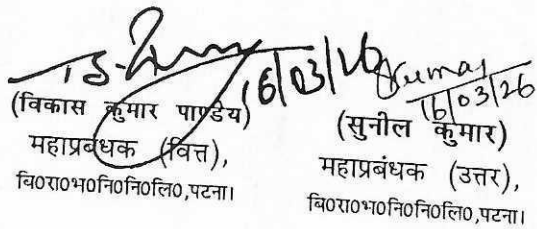 16/03/26
(विकास कुमार पाण्डेय)
महाप्रबंधक (वित्त),
बि०रा०भ०नि०नि०लि०,पटना।
Kumar
16/03/26
(सुनील कुमार)
महाप्रबंधक (उत्तर),
बि०रा०भ०नि०नि०लि०,पटना।